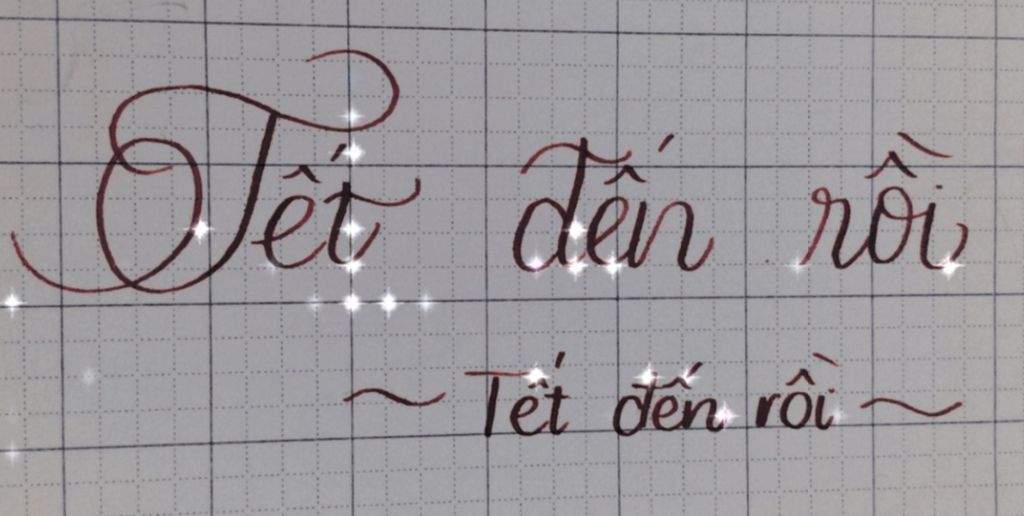 Tết đến rồi
~ Tết đến rồi ~